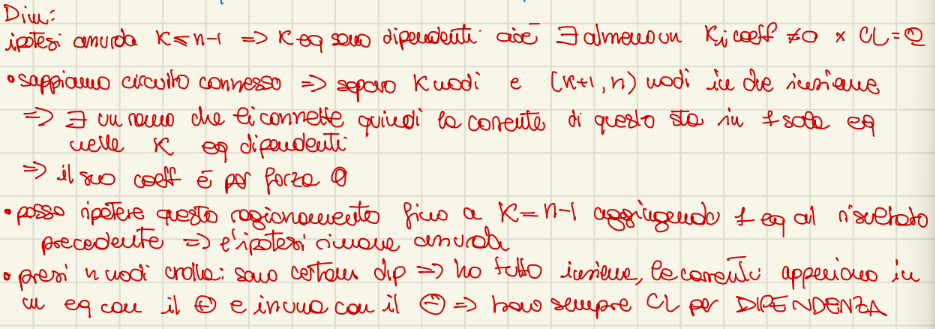 Dim:
ipotesi assurda K ≤ n-1 => K eq sono dipendenti cioè ∃ almeno un Ki coeff ≠0 x CL = 0
• sappiamo circuito connesso => separo K nodi e (K+1, n) nodi in due insiemi
=> ∃ un ramo che li connette quindi la corrente di questo sta in 1 sola eq
nelle K eq dipendenti
=> il suo coeff è per forza 0
• posso ripetere questo ragionamento fino a K = n-1 aggiungendo 1 eq al risultato
precedente => l'ipotesi rimane assurda
• presi n nodi crolla: sono certam dip => ho tutto insieme, le correnti appaiono in
un eq con il ⊕ e in una con il ⊖ => trovo sempre CL per DIPENDENZA